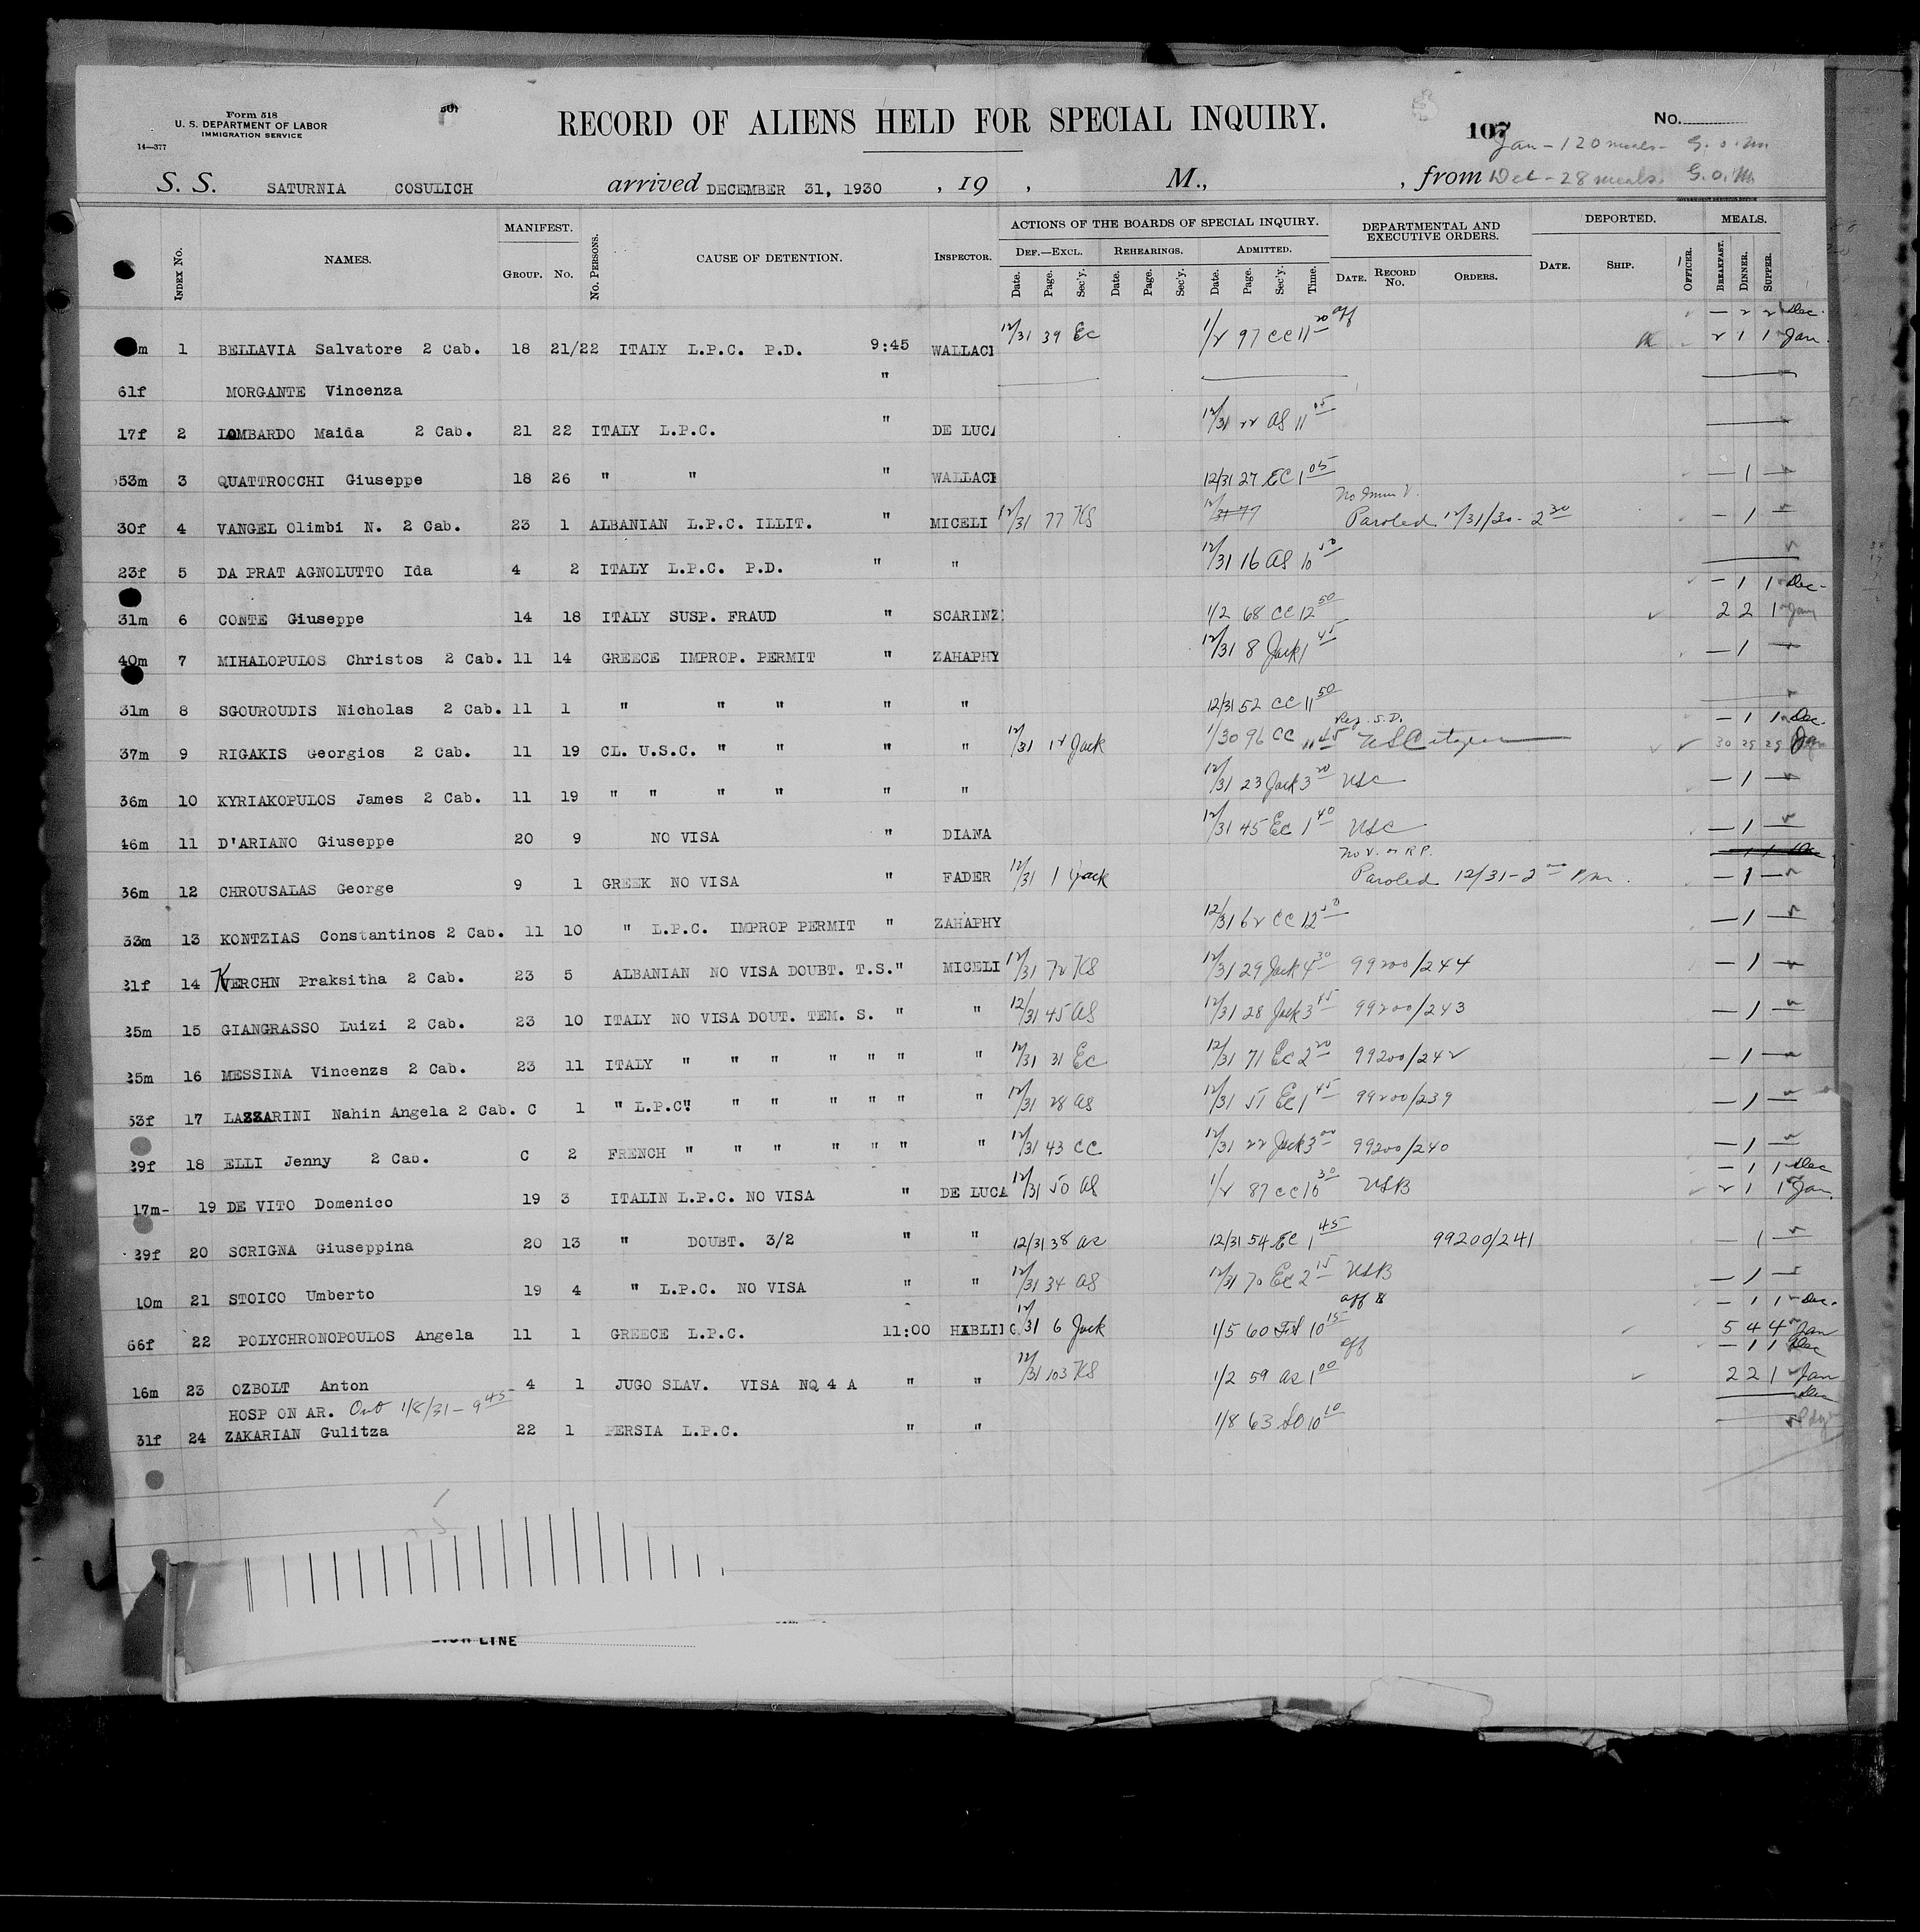 Form 518
U. S. DEPARTMENT OF LABOR
IMMIGRATION SERVICE
14—377
RECORD OF ALIENS HELD FOR SPECIAL INQUIRY.
107
No.
Jan - 120 meals - G.o.M.
S. S. SATURNIA COSULICH arrived DECEMBER 31, 1930 , 19 , M., , from Dec - 28 meals. G.O.M.
INDEX NO. NAMES. MANIFEST. GROUP. NO. NO. PERSONS. CAUSE OF DETENTION. INSPECTOR. ACTIONS OF THE BOARDS OF SPECIAL INQUIRY. DEF.—EXCL. REHEARINGS. ADMITTED. DEPARTMENTAL AND EXECUTIVE ORDERS. DATE. RECORD NO. ORDERS. DEPORTED. DATE. SHIP. OFFICER. MEALS. BREAKFAST. DINNER. SUPPER.
Date. Page. Sec'y. Date. Page. Sec'y. Date. Page. Sec'y. Time.
— 2 2 Dec.
m 1 BELLAVIA Salvatore 2 Cab. 18 21/22 ITALY L.P.C. P.D. 9:45 WALLACE 12/31 39 EC 1/2 97 CC 11 20 aff 2 1 1 Jan.
61f MORGANTE Vincenza "
17f 2 LOMBARDO Maida 2 Cab. 21 22 ITALY L.P.C. " DE LUCA 12/31 22 AS 11 05
53m 3 QUATTROCCHI Giuseppe 18 26 " " " WALLACE 12/31 27 EC 1 05 — 1 —
No Imm V.
30f 4 VANGEL Olimbi N. 2 Cab. 23 1 ALBANIAN L.P.C. ILLIT. " MICELI 12/31 77 KS 12/31 77 Paroled 12/31/30 - 2 30 — 1 —
23f 5 DA PRAT AGNOLUTTO Ida 4 2 ITALY L.P.C. P.D. " " 12/31 16 AS 10 50
— 1 1 Dec-
31m 6 CONTE Giuseppe 14 18 ITALY SUSP. FRAUD " SCARINZ 1/2 68 CC 12 50 2 2 1 Jan
40m 7 MIHALOPULOS Christos 2 Cab. 11 14 GREECE IMPROP. PERMIT " ZAHAPHY 12/31 8 Jack 1 45 — 1 —
31m 8 SGOUROUDIS Nicholas 2 Cab. 11 1 " " " " " 12/31 52 CC 11 50
— 1 1 Dec.
37m 9 RIGAKIS Georgios 2 Cab. 11 19 CL. U.S.C. " " " " 12/31 12 Jack 1/30 96 CC 11 45 US Citizen 30 29 29 Jan
36m 10 KYRIAKOPULOS James 2 Cab. 11 19 " " " " " " 12/31 23 Jack 3 20 USC — 1 —
46m 11 D'ARIANO Giuseppe 20 9 NO VISA " DIANA 12/31 45 EC 1 40 USC — 1 —
No V. or R.P.
36m 12 CHROUSALAS George 9 1 GREEK NO VISA " FADER 12/31 1 Jack Paroled 12/31 - 2 00 P.M. — 1 —
33m 13 KONTZIAS Constantinos 2 Cab. 11 10 " L.P.C. IMPROP PERMIT " ZAHAPHY 12/31 62 CC 12 50 — 1 —
31f 14 KVERCHN Praksitha 2 Cab. 23 5 ALBANIAN NO VISA DOUBT. T.S. " MICELI 12/31 72 KS 12/31 29 Jack 4 30 99200/244 — 1 —
35m 15 GIANGRASSO Luizi 2 Cab. 23 10 ITALY NO VISA DOUT. TEM. S. " " 12/31 45 AS 12/31 28 Jack 3 45 99200/243 — 1 —
35m 16 MESSINA Vincenzs 2 Cab. 23 11 ITALY " " " " " " " 12/31 31 EC 12/31 71 EC 2 20 99200/242 — 1 —
53f 17 LAZZARINI Nahin Angela 2 Cab. C 1 " L.P.C. " " " " " " " 12/31 28 AS 12/31 51 EC 1 45 99200/239 — 1 —
39f 18 ELLI Jenny 2 Cab. C 2 FRENCH " " " " " " " 12/31 43 CC 12/31 22 Jack 3 00 99200/240 — 1 —
— 1 1 Dec
17m- 19 DE VITO Domenico 19 3 ITALIN L.P.C. NO VISA " DE LUCA 12/31 50 AS 1/2 87 CC 10 30 USB 2 1 1 Jan.
39f 20 SCRIGNA Giuseppina 20 13 " DOUBT. 3/2 " " 12/31 38 AS 12/31 54 EC 1 45 99200/241 — 1 —
10m 21 STOICO Umberto 19 4 " L.P.C. NO VISA " " 12/31 34 AS 12/31 70 EC 2 15 USB — 1 —
aff — 1 1 Dec.
66f 22 POLYCHRONOPOULOS Angela 11 1 GREECE L.P.C. 11:00 12/31 6 Jack 1/5 60 10 15 5 4 4 Jan
aff — 1 1 Dec
16m 23 OZBOLT Anton 4 1 JUGO SLAV. VISA NQ 4 A " " 12/31 103 KS 1/2 59 AS 1 00 2 2 1 Jan
HOSP ON AR. Out 1/8/31 - 9 45
31f 24 ZAKARIAN Gulitza 22 1 PERSIA L.P.C. " " 1/8 63 10 10
LINE